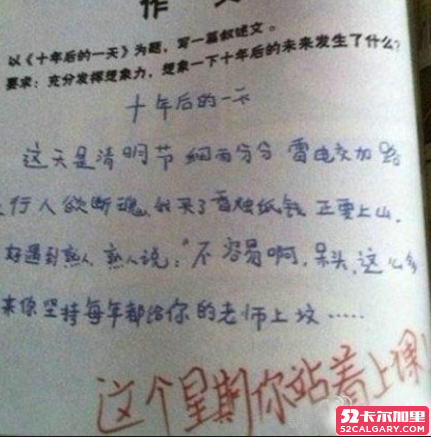 作 文
以《十年后的一天》为题，写一篇叙述文。
要求：充分发挥想象力，想象一下十年后的未来发生了什么？
十年后的一天
这天是清明节 细雨分分 雷电交加 路
上行人欲断魂，我买了香烛纸钱 正要上山，
好遇到熟人，熟人说："不容易啊，呆头，这么多
来你坚持每年都给你的老师上坟……
这个星期你站着上课！
52 卡尔加里
52CALGARY.COM